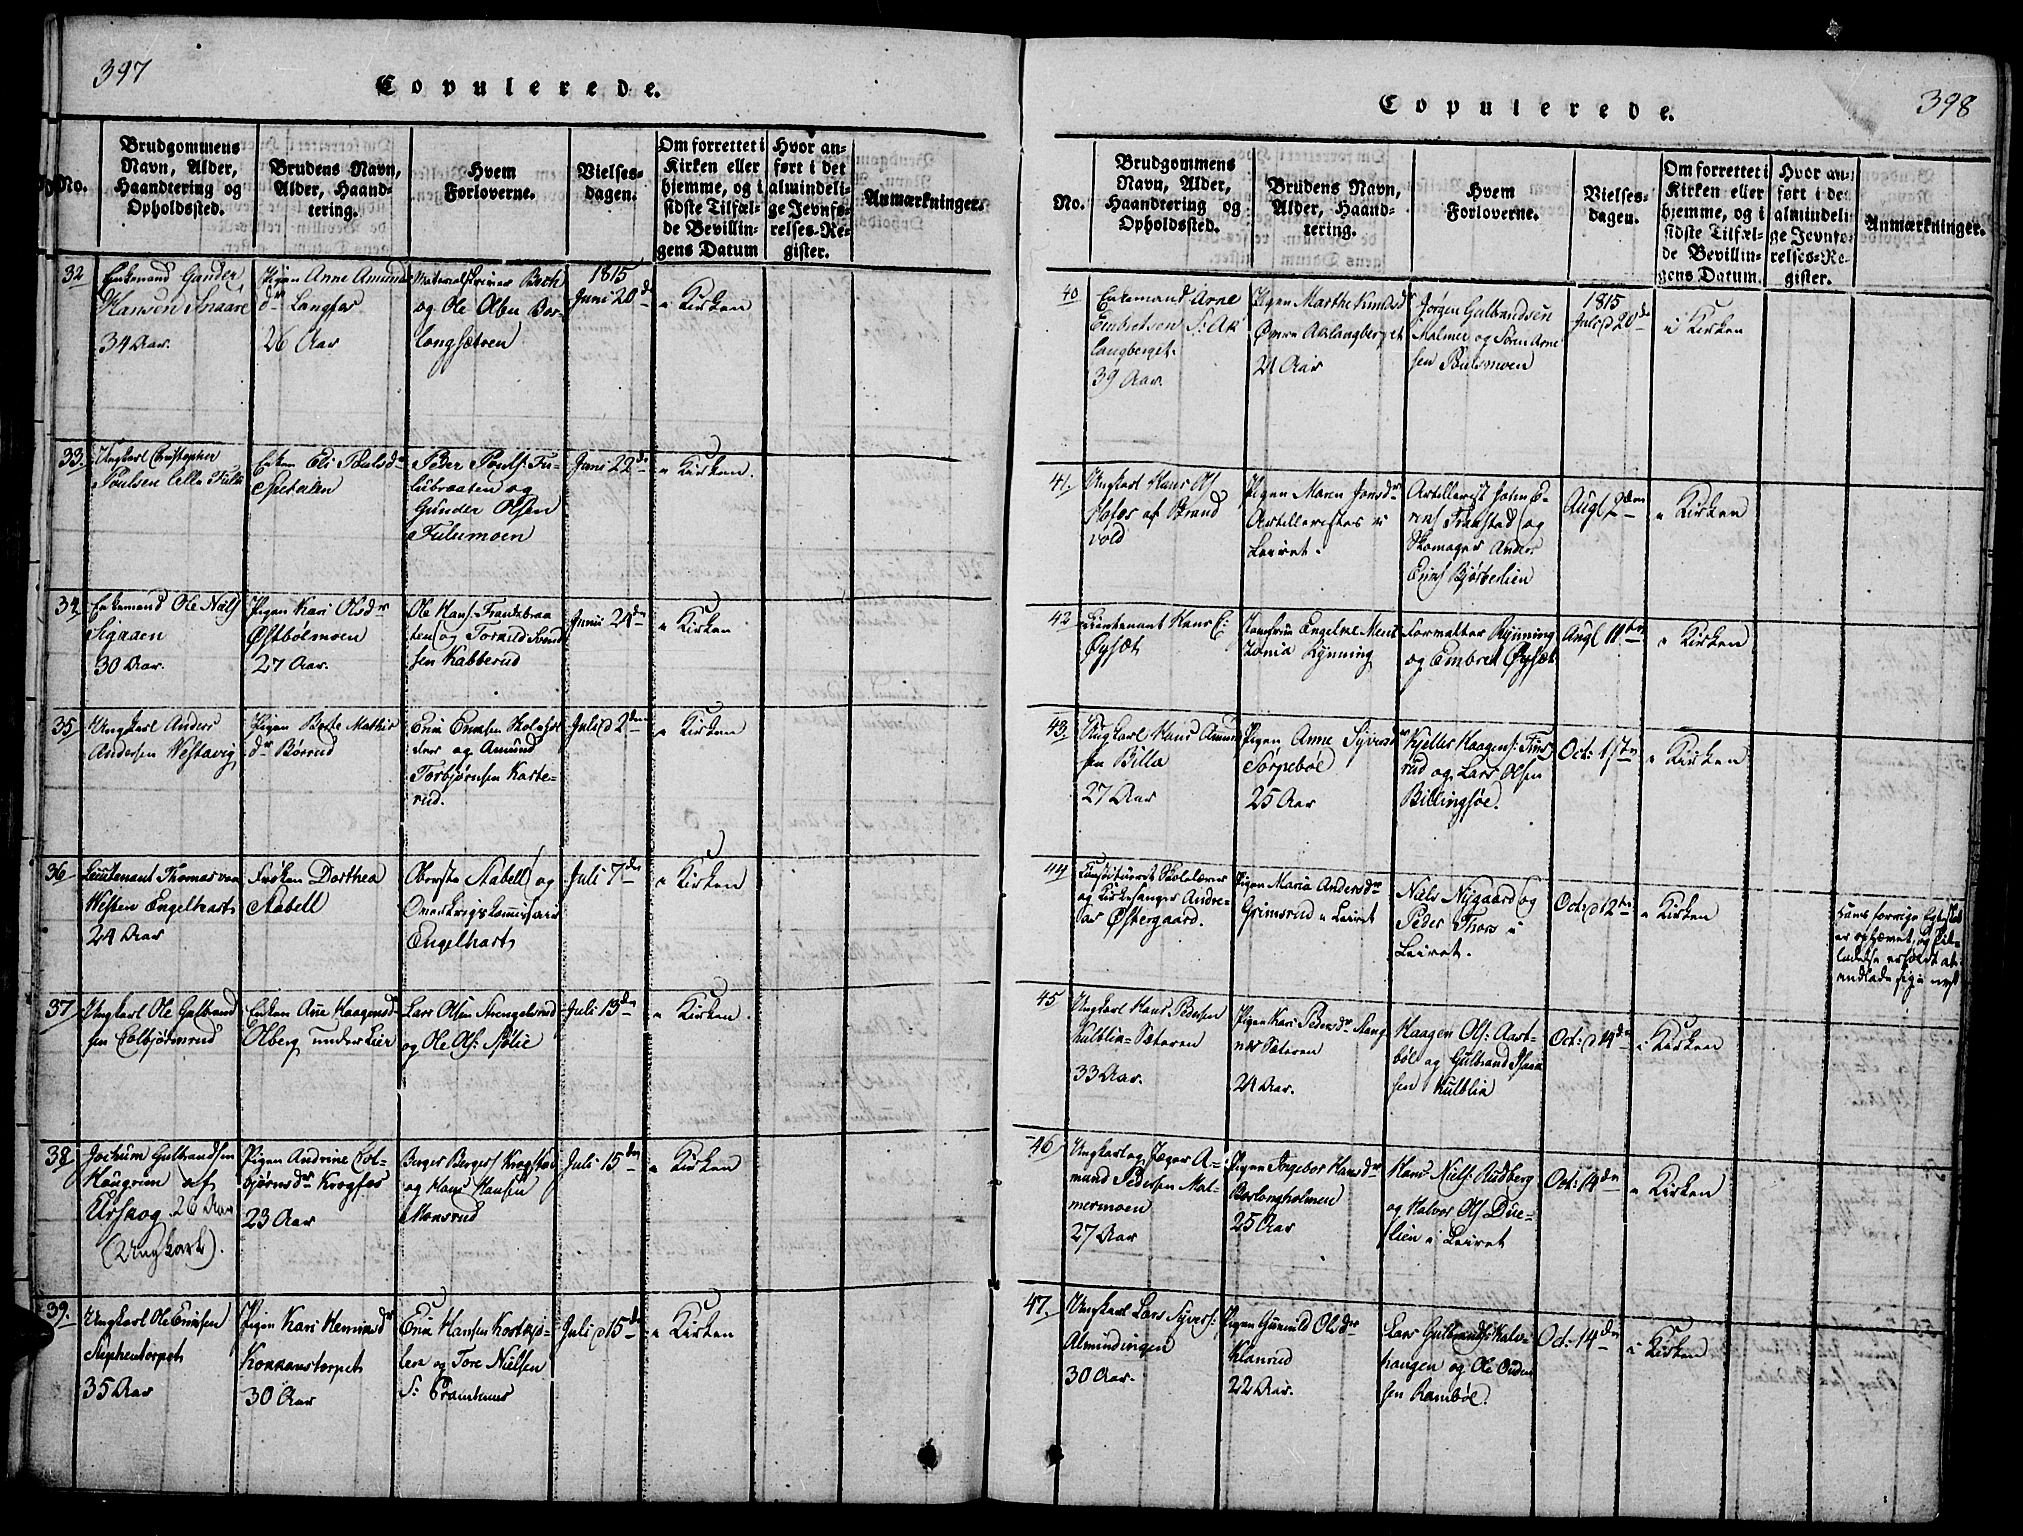 397
Copulerede.
No.
Brudgommens
Navn, Alder,
Haandtering og
Opholdssted.
Brudens Navn,
Alder, Haand-
tering.
Hvem
Forloverne.
Vielses-
dagen.
Om forrettet i
Kirken eller
hjemme, og i
sidste Tilfæl-
de Bevillin-
gens Datum
Hvor an-
ført i det
almindeli-
ge Jevnfø-
relses-Re-
gister.
Anmærkninger.
32
Enkemand Gunder
Hansen Snaare
34 Aar.
Pigen Anne Amunds
dr Langfos
26 Aar
Materialskriver Bech
og Ole Olsen Bor-
longsætren
1815
Juni 20de
i Kirken
33.
Ungkarl Christopher
Poulsen Lille Fulu
Enken Eli Poulsdr
Spetalen
Peder Pouls: Fu-
lubraaten og
Gunder Olsen
Fulumoen
Juni 22de
i Kirken
34
Enkemand Ole Niels
Sigaaen
30 Aar.
Pigen Kari Olsdr
Østbølmoen
27 Aar.
Ole Hans: Frandsbraa
ten og Tornild Svend
sen Kabberud
Junii 24de
i Kirken
35
Ungkarl Anders
Andersen Westavig
Pigen Berte Mathis
dr Borrud
Eric Ericsen
og Amund
Torbjørnsen Karte-
rud.
Juli 2den
i Kirken
36
Lieutenant Thomas von
Westen Engelhart
24 Aar
Frøken Dorthea
Stabell
Oberste Stabell og
Over Krigs Commissair
Engelhart
Juli 7de
i Kirken
37
Ungkarl Ole Gulbrand
sen Colbjørnsrud
Enken Ane Haagensdr
Olberg under Lier
Lars Olsen Strengelsrud
og Ole Ols: Sjølie
Juli 13de
i Kirken
38
Jochum Gulbrandsen
Haugrim af
Urskog 26 Aar
(Ungkarl).
Pigen Andrine Col-
bjørnsdr Krogfos
23 Aar
Berger Bergers Krogfos
og Hans Hansen
Monsrud
Juli 15de
i Kirken
39.
Ungkarl Ole Ericsen
Stephentorpet
35 Aar
Pigen Kari Henricsdr
Korranstorpet
30 Aar
Eric Hansen
og Tore Nielsen
S:
Juli 15de
i Kirken
398
Copulerede.
No.
Brudgommens
Navn, Alder,
Haandtering og
Opholdssted.
Brudens Navn,
Alder, Haand-
tering.
Hvem
Forloverne.
Vielses-
dagen.
Om forrettet i
Kirken eller
hjemme, og i
sidste Tilfæl-
de Bevillin-
gens Datum.
Hvor an-
ført i det
almindeli-
ge Jevnfø-
relses-Re-
gister.
Anmærkninger.
40
Enkemand Arne
Embretsen S: Ak
langberget.
39 Aar.
Pigen Marthe Knudsdr
Øvre Aklangberget
21 Aar
Jørgen Gulbrandsen
Malmer og Søren Arne
sen Poulsmoen
1815
Juli 20de
i Kirken
41.
Ungkarl Hans Ol:
af Strand
vold
Pigen Maren Jonsdr
Artilleristes i
Leiret.
Artillerist John E-
rics: Frenstad og
Skomager Anders
Erics Bjørberlien
Aug: 2den
i Kirken
42
Lieutenant Hans E:
Øgset
Jomfrue Engelke
Rynning
Forvalter Rynning
og Embret Øgset
Aug: 11te
i Kirken
43.
Ungkarl Hans Amund
sen Billa
27 Aar
Pigen Anne Syversdr
Torpebøe
25 Aar
Kjeller Haagens:
rud og Lars Olsen
Billingsøe.
Oct: 1ste
i Kirken
44
Constitueret Skolelærer
og Kirkesanger Andre-
as Østergaard.
Pigen Maria Andersdr
Grimsrud i Leiret
Niels Nygaard og
Peder Thors i
Leiret.
Oct: 12te
i Kirken
Hans forrige Egteskab
er ophævet, og Til-
ladelse erholdt at
indlade sig i nyt
45
Ungkarl Hans Pedersen
Kulblik-Sæteren
33 Aar.
Pigen Kari Pedersdr
Sæteren
24 Aar.
Haagen Ols: Aart-
bøl og Gulbrand
sen Kulblik
Oct: 14de
i Kirken
46
Ungkarl og Jæger A-
mund Pedersen Mal-
mermoen
27 Aar
Pigen Ingebor Hansdr
Borlongholmen
25 Aar
Hans Niels: Rudberg
og Halvor Ols Due-
lien i Leiret
Oct: 14de
i Kirken
47.
Ungkarl Lars Syvers:
Almindingen
30 Aar.
Pigen Gunild Olsdr
Klanrud
22 Aar.
Lars Gulbrands: Halv-
haugen og Ole Ouden
sen Rambøl.
Oct: 14de
i Kirken